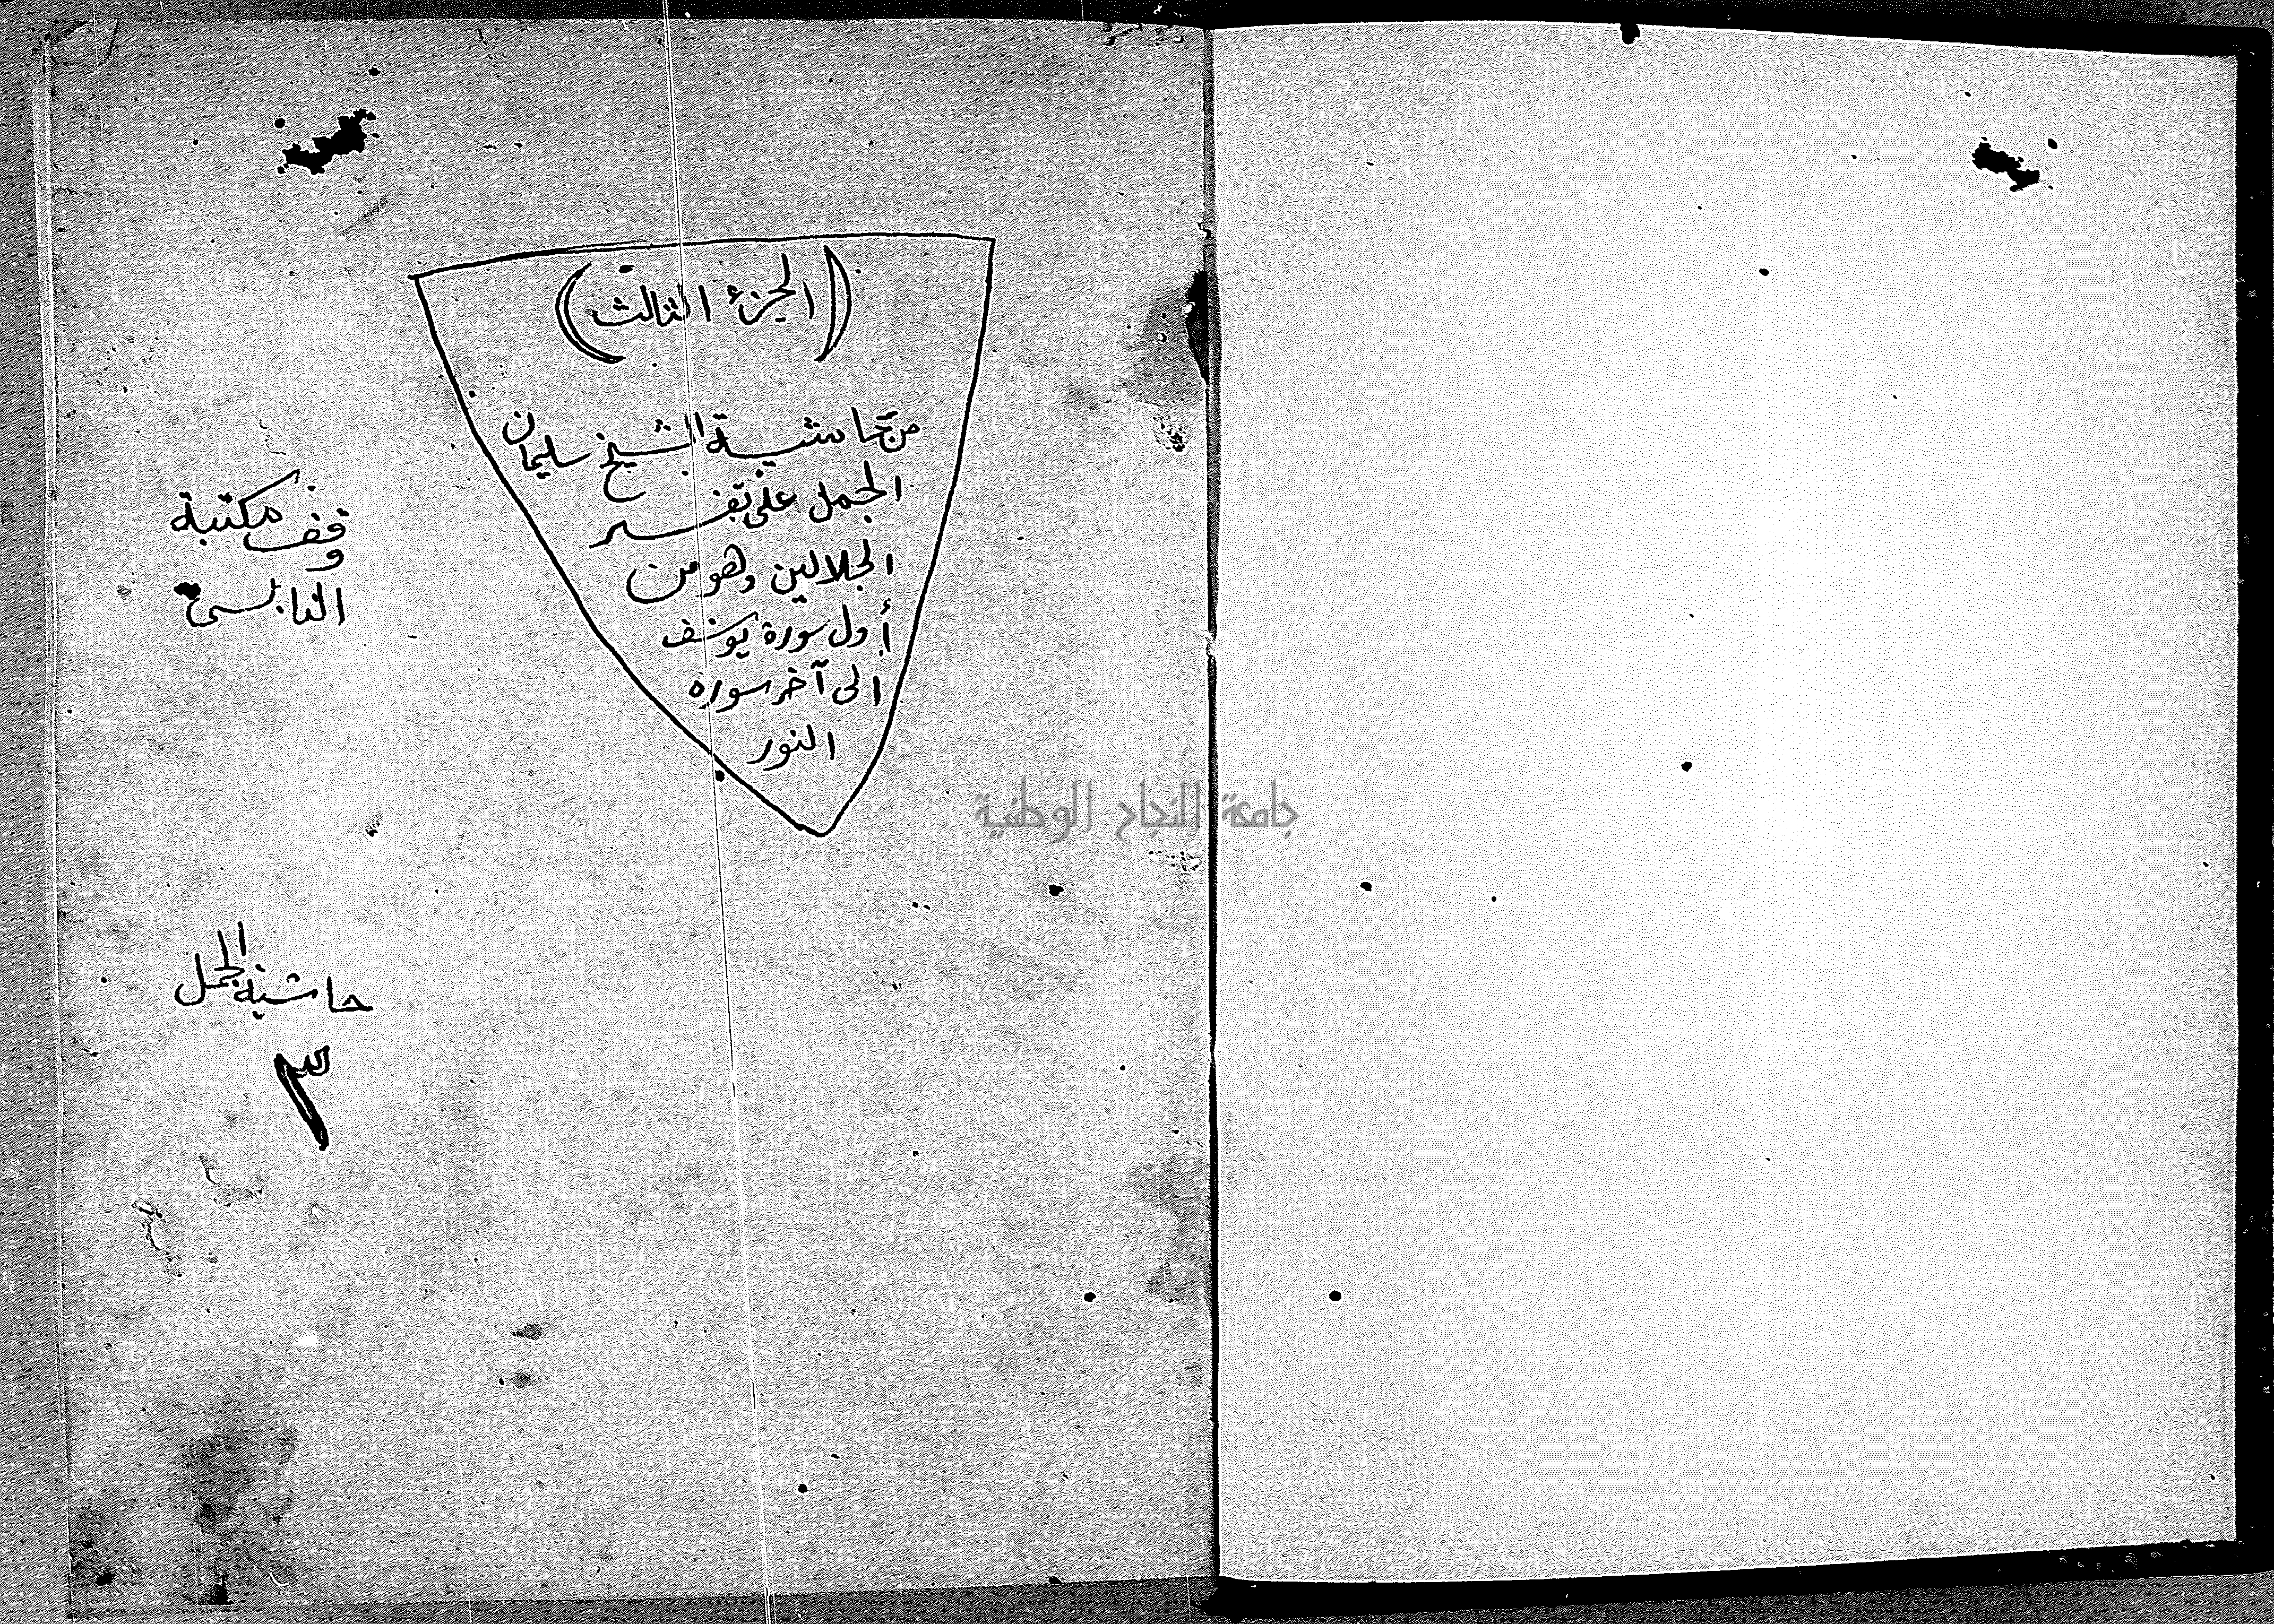 (الجزء الثالث)
من حاشية الشيخ سليمان
الجمل على تفسير
الجلالين وهو من
أول سورة يوسف
الى آخر سوره
النور
وقف مكتبة
النابلسي
حاشية الجمل
٣
جامعة النجاح الوطنية